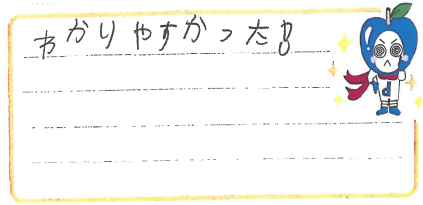 わかりやすかった!!
d